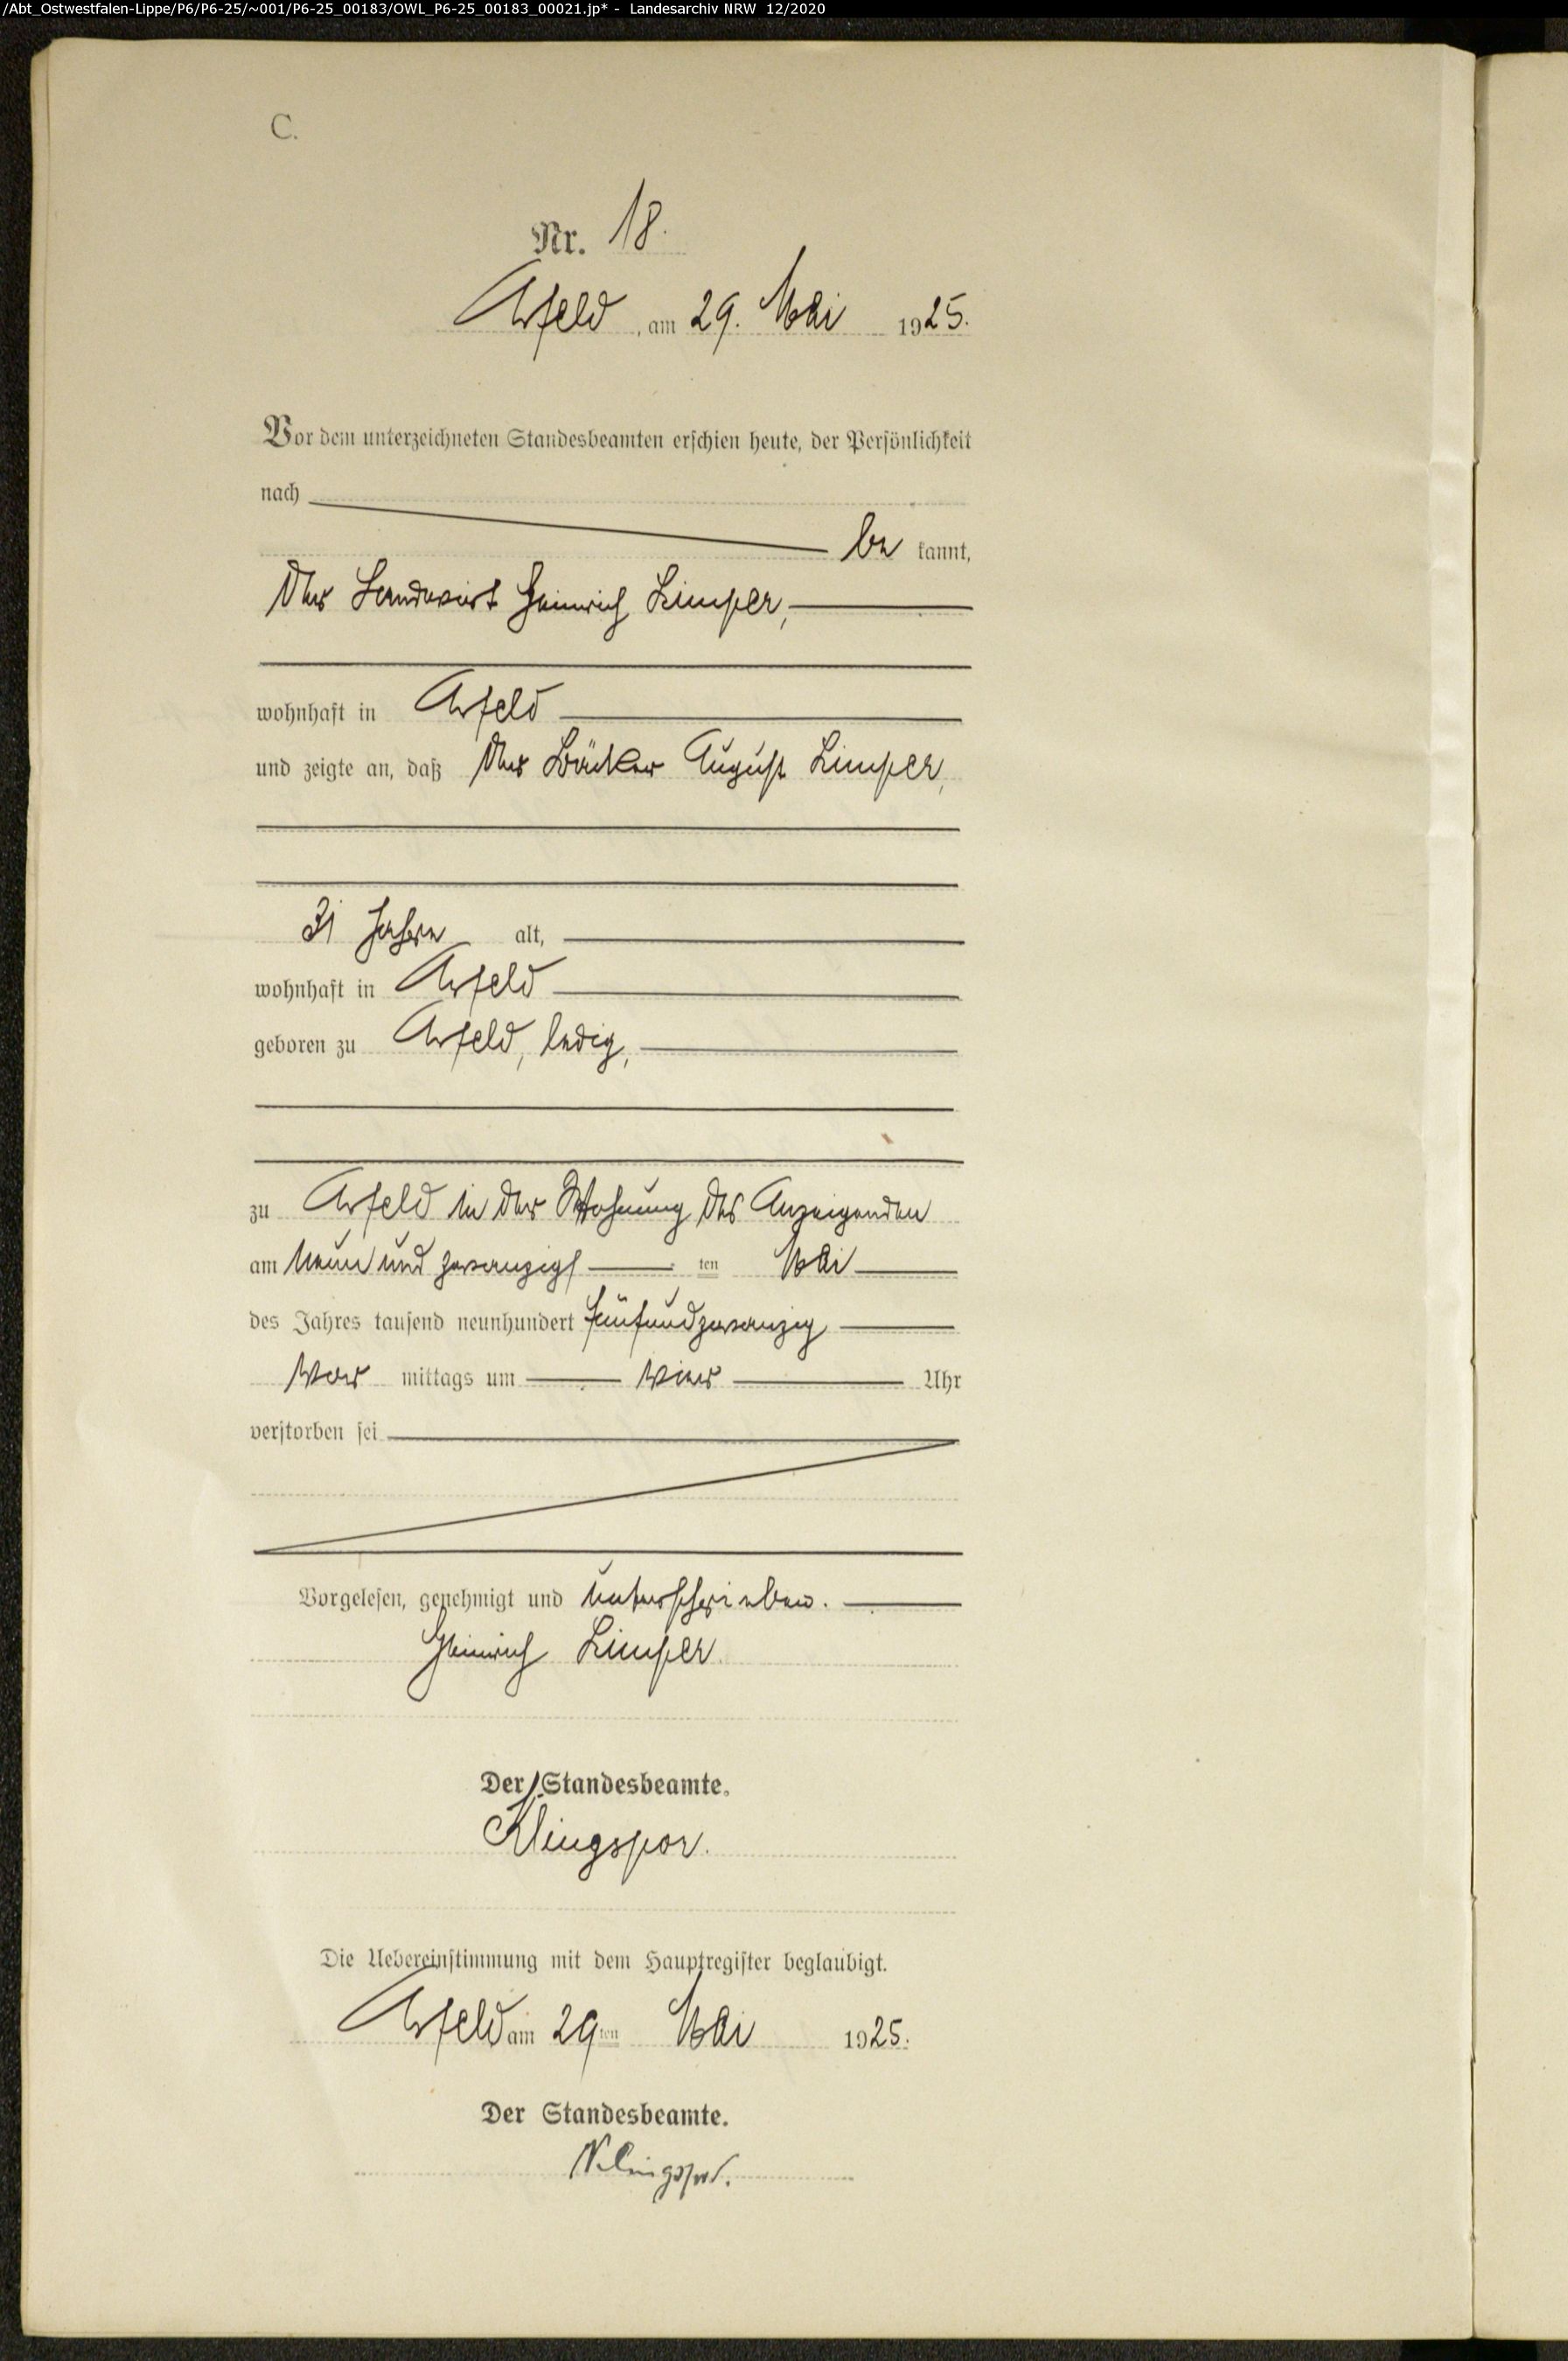 /Abt_Ostwestfalen-Lippe/P6/P6-25/~001/P6-25_00183/OWL_P6-25_00183_00021.jp* - Landesarchiv NRW 12/2020
C.
Nr. 18.
Arfeld, am 29. Mai 1925.
Vor dem unterzeichneten Standesbeamten erschien heute, der Persönlichkeit
nach
be kannt,
der Landwirt Heinrich Limper,
wohnhaft in Arfeld
und zeigte an, daß der Bäcker August Limper,
31 Jahre alt,
wohnhaft in Arfeld
geboren zu Arfeld, ledig,
zu Arfeld in der Wohnung des Anzeigenden
am neun und zwanzigs ten Mai
des Jahres tausend neunhundert fünfundzwanzig
vor mittags um vier Uhr
verstorben sei
Vorgelesen, genehmigt und unterschrieben.
Heinrich Limper.
Der Standesbeamte.
Klingspor.
Die Uebereinstimmung mit dem Hauptregister beglaubigt.
Arfeld am 29ten Mai 1925.
Der Standesbeamte.
Klingspor.